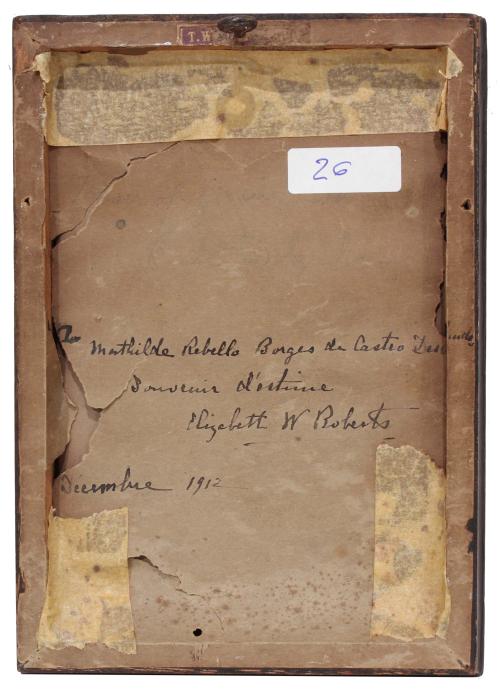 T. W
26
To
Mathilde Rebello Borges de Castro
Souvenir d'estime
Elizabeth W Roberts
Décembre 1912